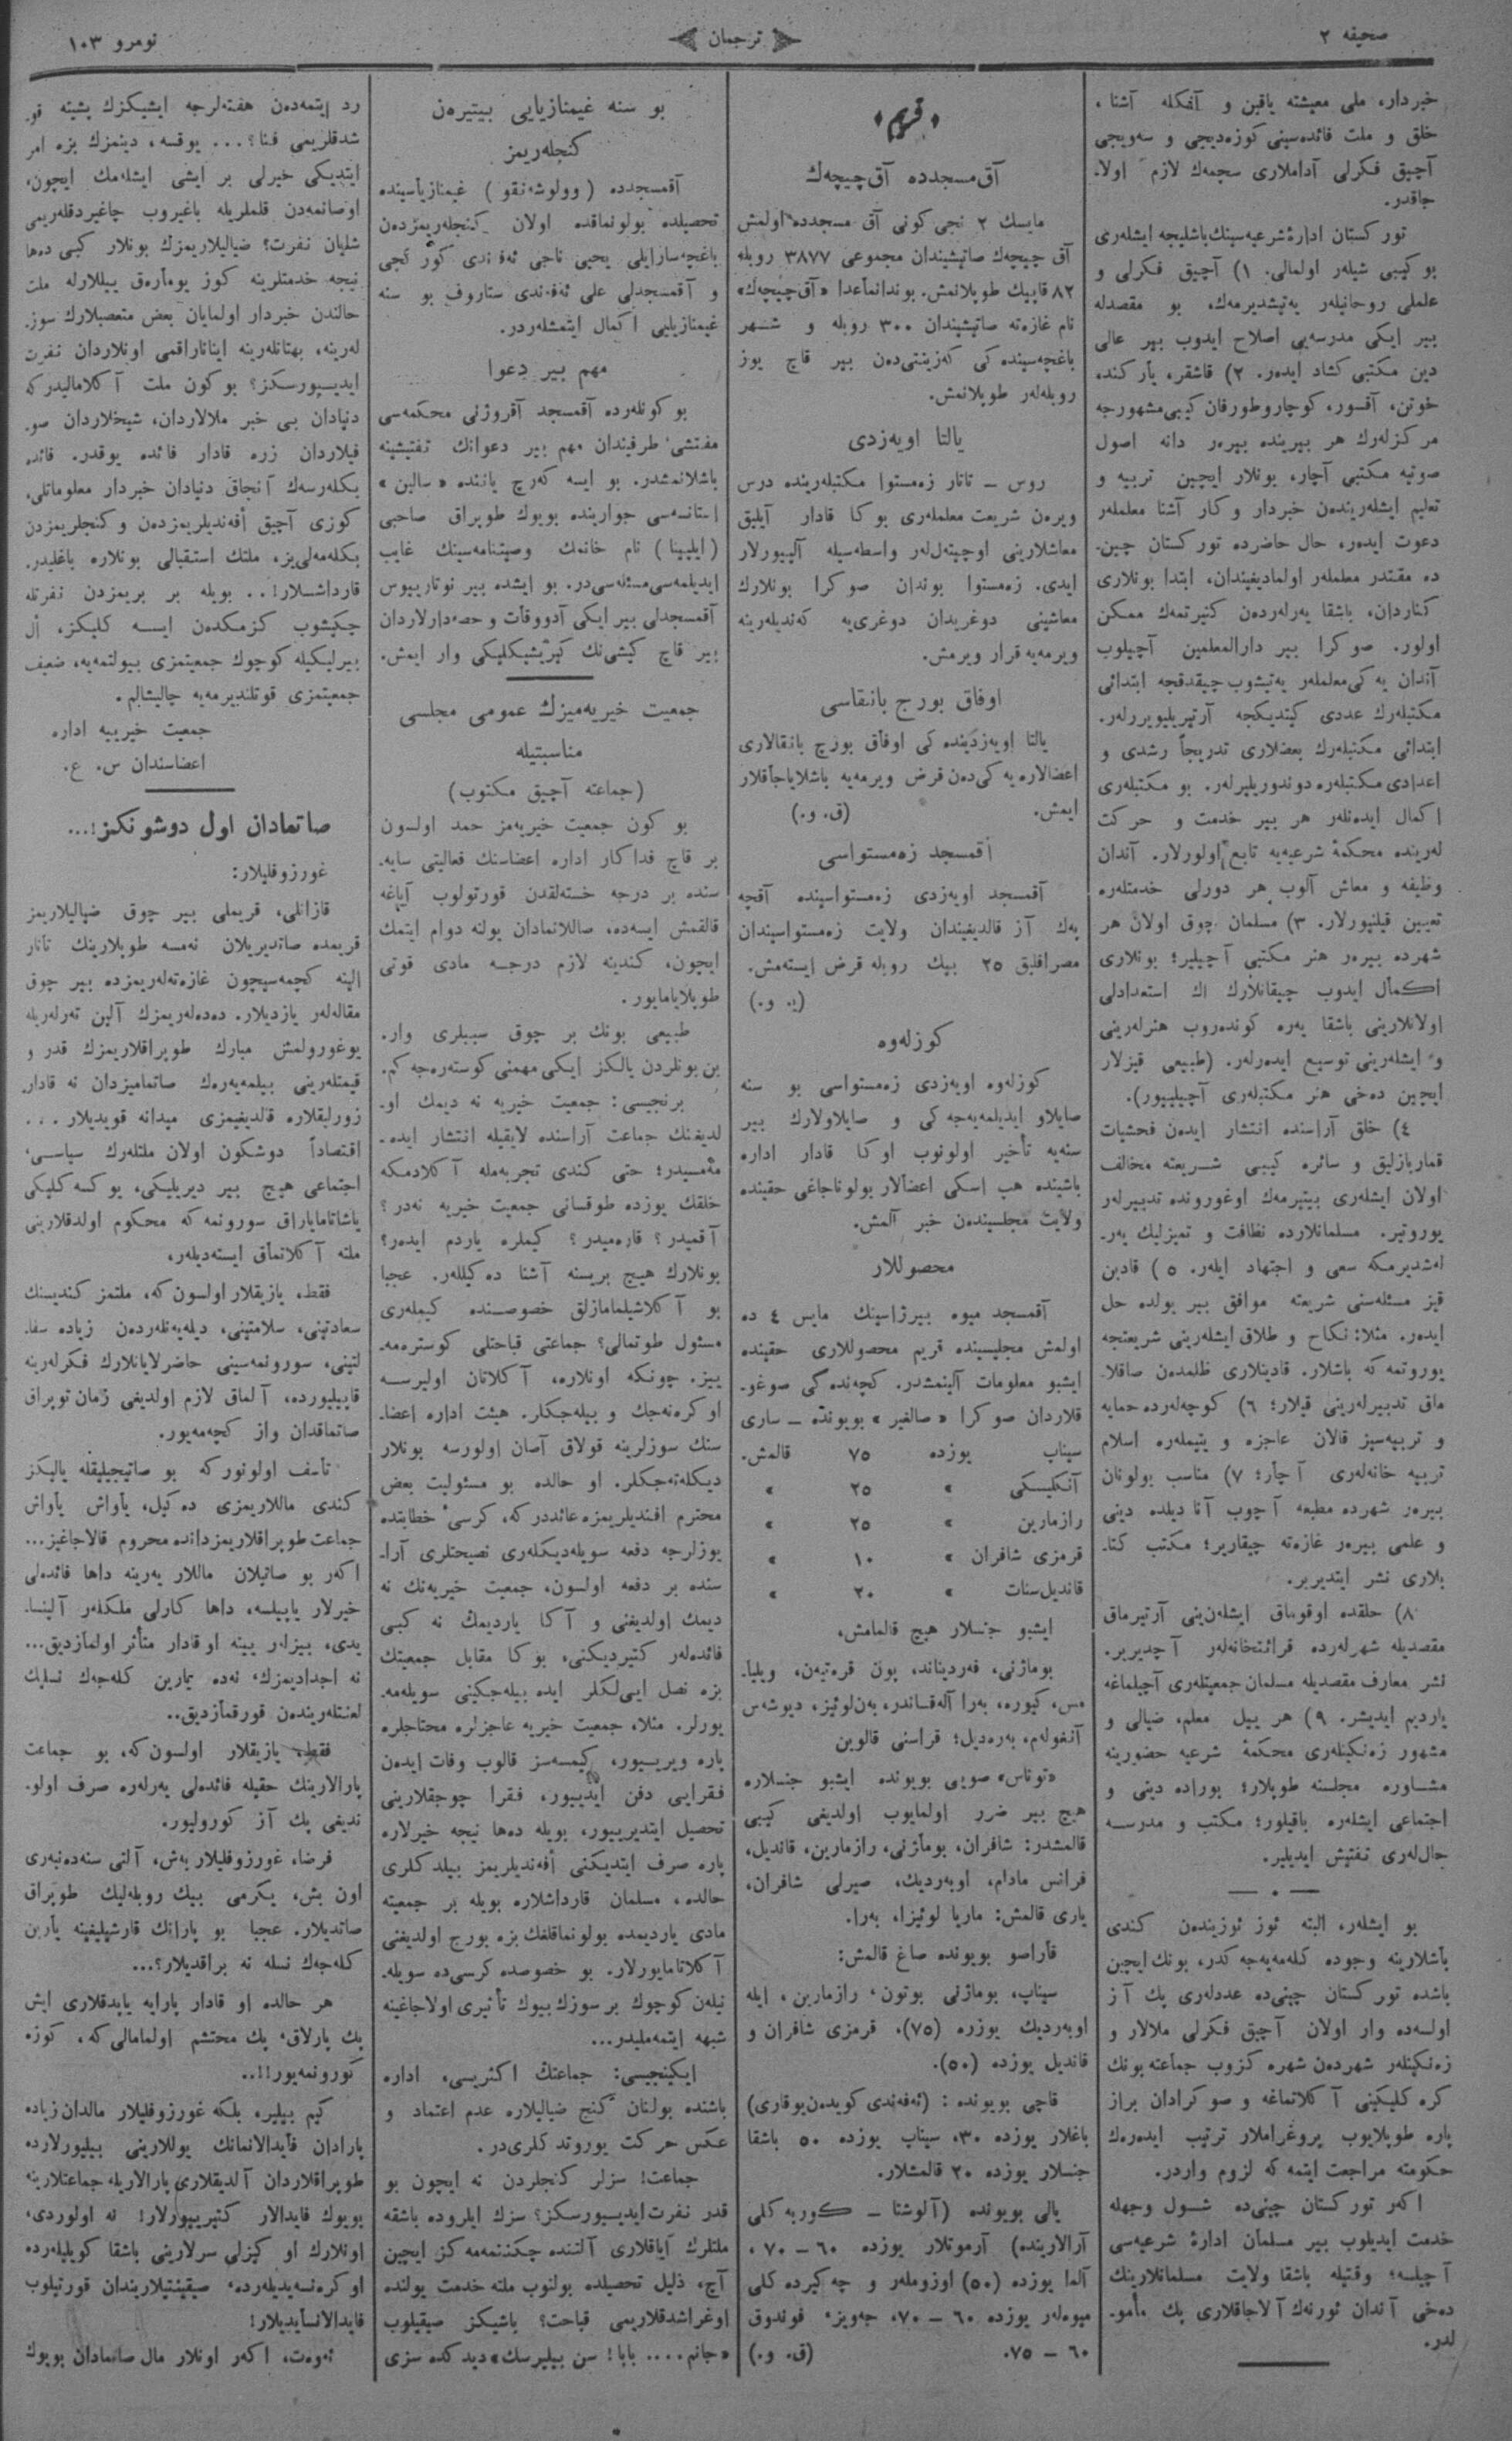 صحیفه ٢
ترجمان
نومرو ١٠٣
خبردار، ملی معیشته یاقین و آفكله آشنا،
خلق و ملت فائده‌سینی كوزه‌دیجی و سه‌ویجی
آچیق فكرلی آداملاری سچمه‌ك لازم اولا-
جاقدر.
توركستان ادارهٔ شرعیه‌سینك باشلیجه ایشله‌ری
بو كیبی شیلر اولمالی. ١) آچیق فكرلی و
علملی روحانیله‌ر یه‌تیشدیرمه‌ك، بو مقصدله
بیر ایكی مدرسه‌یی اصلاح ایدوب بیر عالی
دین مكتبی كشاد ایده‌ر. ٢) قاشقر، یاركند،
خوتن، آقسور، كوچار و طورفان كیبی مشهورجه
مركزله‌رك هر بیرینده بیره‌ر دانه اصول
صوتیه مكتبی آچار، بونلار ایچین تربیه و
تعلیم ایشله‌ریندن خبردار و كار آشنا معلمله‌ر
دعوت ایده‌ر، حال حاضرده توركستان چین-
ده مقتدر معلمله‌ر اولمادیغیندان، ابتدا بونلاری
كناردان، باشقا یه‌رله‌ردن كتیرتمه‌ك ممكن
اولور. صوكرا بیر دارالمعلمین آچیلوب
آندان یه‌كی معلمله‌ر یه‌تیشوب چیقدقجه ابتدائی
مكتبله‌رك عددی كیتدیكجه آرتیریلیویررله‌ر.
ابتدائی مكتبله‌رك بعضلاری تدریجاً رشدی و
اعدادی مكتبله‌ره دوندوریلیرله‌ر. بو مكتبله‌ری
اكمال ایده‌نله‌ر هر بیر خدمت و حركت
له‌رینده محكمهٔ شرعیه‌یه تابع اولورلار. آندان
وظیفه و معاش آلوب هر دورلی خدمتله‌ره
تعیین قیلنیورلار. ٣) مسلمان چوق اولان هر
شهرده بیره‌ر هنر مكتبی آچیلیر؛ بونلاری
اكمال ایدوب چیقانلارك اك استعدادلی
اولانلارینی باشقا یه‌ره كونده‌روب هنرله‌رینی
و ایشله‌رینی توسیع ایده‌رله‌ر. (طبیعی قیزلار
ایچین ده‌خی هنر مكتبله‌ری آچیلیور).
٤) خلق آراسنده انتشار ایده‌ن فحشیات
قماربازلیق و سائره كیبی شریعته مخالف
اولان ایشله‌ری بیتیرمه‌ك اوغورونده تدبیرله‌ر
یوروتیر. مسلمانلارده نظافت و تمیزلیك یه‌ر-
له‌شدیرمكه سعی و اجتهاد ایله‌ر. ٥) قادین
قیز مسئله‌سنی شریعته موافق بیر یولده حل
ایده‌ر. مثلا: نكاح و طلاق ایشله‌رینی شریعتجه
یوروتمه‌كه باشلار. قادینلاری ظلمدن صاقلا-
ماق تدبیرله‌رینی قیلار؛ ٦) كوچه‌له‌رده حمایه
و تربیه‌سیز قالان عاجزه و یتیمله‌ره اسلام
تربیه خانه‌له‌ری آچار؛ ٧) مناسب بولونان
بیره‌ر شهرده مطبعه آچوب آنا دیلده دینی
و علمی بیره‌ر غازه‌ته چیقاریر؛ مكتب كتا-
بلاری نشر ایتدیریر.
٨) حلقده اوقوماق ایشله‌رینی آرتیرماق
مقصدیله شهرله‌رده قرائتخانه‌له‌ر آچدیریر.
نشر معارف مقصدیله مسلمان جمعیتله‌ری آچیلماغه
یاردیم ایدیشر. ٩) هر ییل معلم، ضیالی و
مشهور زه‌نكینله‌ری محكمهٔ شرعیه حضورینه
مشاوره مجلسنه طوپلار؛ بوراده دینی و
اجتماعی ایشله‌ره باقیلور؛ مكتب و مدرسه
حال‌له‌ری تفتیش ایدیلیر.
بو ایشله‌ر، البته ئوز ئوزیندن كندی
باشلارینه وجوده كله‌مه‌یه‌جه‌كدر، بونك ایچین
باشده توركستان چینی‌ده عددله‌ری پك آز
اولسه‌ده وار اولان آچیق فكرلی ملالار و
زه‌نكینله‌ر شهردن شهره كزوب جماعته بونك
كره‌كلیكینی آكلاتماغه و صوكرادان براز
پاره طوپلایوب پروغراملار ترتیب ایده‌رك
حكومته مراجعت ایتمه‌كه لزوم واردر.
اكه‌ر توركستان چینی‌ده شول وجهله
خدمت ایدیلوب بیر مسلمان ادارهٔ شرعیه‌سی
آچیلسه؛ وقتیله باشقا ولایت مسلمانلارینك
ده‌خی آندان ئورنه‌ك آلاجاقلاری پك مأمو-
لدر.
قریم
آق مسجدده آق چیچه‌ك
مایسك ٢ نجی كونی آق مسجدده اولمش
آق چیچه‌ك صاتیشیندان مجموعی ٣٨٧٧ روبله
٨٢ قاپیك طوپلانمش. بوندانماعدا «آق چیچه‌ك»
نام غازه‌ته صاتیشیندان ٣٠٠ روبله و شهر
باغچه‌سینده‌كی كه‌زینتی‌دن بیر قاچ یوز
روبله‌له‌ر طوپلانمش.
یالتا اویه‌زدی
روس – تاتار زه‌مستوا مكتبله‌رینده درس
ویره‌ن شریعت معلمله‌ری بوكا قادار آیلیق
معاشلارینی اوچیته‌ل‌له‌ر واسطه‌سیله آلییورلار
ایدی. زه‌مستوا بوندان صوكرا بونلارك
معاشینی دوغریدان دوغری‌یه كه‌ندیله‌رینه
ویرمه‌یه قرار ویرمش.
اوفاق بورج بانقاسی
یالتا اویه‌زدینده‌كی اوفاق بورج بانقالاری
اعضالاره یه‌كی‌دن قرض ویرمه‌یه باشلایاجاقلار
ایمش. (ق. و.)
آقمسجد زه‌مستواسی
آقمسجد اویه‌زدی زه‌مستواسینده آقچه
پك آز قالدیغیندان ولایت زه‌مستواسیندان
مصرافلیق ٢٥ بیك روبله قرض ایسته‌مش.
(ی. و.)
كوزله‌وه
كوزله‌وه اویه‌زدی زه‌مستواسی بو سنه
صایلاو ایدیلمه‌یه‌جه‌كی و صایلاولارك بیر
سنه‌یه تأخیر اولونوب اوكا قادار اداره
باشینده هپ اسكی اعضالار بولوناجاغی حقینده
ولایت مجلسیندن خبر آلمش.
محصوللار
آقمسجد میوه بیرژاسینك مایس ٤ ده
اولمش مجلسینده قریم محصوللاری حقینده
ایشبو معلومات آلینمشدر. كچه‌نده‌كی صوغو-
قلاردان صوكرا «صالغیر» بویونده – ساری
سیناپ یوزده ٧٥ قالمش.
آنكلیسكی » ٢٥ »
رازمارین » ٢٥ »
قرمزی شافران » ١٠ »
قاندیل سنات » ٢٠ »
ایشبو جنسلار هیچ قالمامش،
بوماژنی، فه‌ردیناند، بون قره‌تیه‌ن، ویلیا-
مس، كیوره، به‌را آله‌قساندر، به‌ن‌لوئیز، دیوشه‌س
آنغوله‌م، به‌ره‌دیل؛ قراسنی قالوین
«توناس» صویی بویونده ایشبو جنسلاره
هیچ بیر ضرر اولمایوب اولدیغی كیبی
قالمشدر: شافران، بوماژنی، رازمارین، قاندیل،
فرانس مادام، اوبه‌ردیك، صیرلی شافران،
یاری قالمش: ماریا لوئیزا، به‌را.
قاراصو بویونده صاغ قالمش:
سیناپ، بوماژنی بوتون، رازمارین، ایله
اوبه‌ردیك یوزره (٧٥)، قرمزی شافران و
قاندیل یوزده (٥٠).
قاچی بویونده: (ئه‌فه‌ندی كویدن یوقاری)
باغلار یوزده ٣٠، سیناپ یوزده ٥٠ باشقا
جنسلار یوزده ٢٠ قالمشلار.
یالی بویونده (آلوشتا – كوربه‌كلی
آرالارینده) آرموتلار یوزده ٦٠ – ٧٠،
آلما یوزده (٥٠) اوزوملر و چه‌كیرده‌كلی
میوه‌له‌ر یوزده ٦٠ – ٧٠، جه‌ویز، فوندوق
٦٠ – ٧٥. (ق. و.)
بو سنه غیمنازیایی بیتیره‌ن
كنجله‌ریمز
آقمسجدده (وولوشه‌نقو) غیمنازیاسینده
تحصیلده بولونماقده اولان كنجله‌ریمزدن
باغچه‌سارایلی یحیی ناجی ئه‌فه‌ندی كورگجی
و آقمسجدلی علی ئه‌فه‌ندی ستاروف بو سنه
غیمنازیایی اكمال ایتمشله‌ردر.
مهم بیر دعوا
بو كونله‌رده آقمسجد آقروژنی محكمه‌سی
مفتشی طرفیندان مهم بیر دعوانك تفتیشینه
باشلانمشدر. بو ایسه كه‌رچ یاننده «سالین»
استانسه‌سی جوارینده بویوك طوپراق صاحبی
(ایلیینا) نام خانمك وصیتنامه‌سینك غایب
ایدیلمه‌سی مسئله‌سی‌در. بو ایشده بیر نوتاریوس
آقمسجدلی بیر ایكی آدووقات و حصه‌دارلاردان
بیر قاچ كیشی‌نك كیریشیكلیكی وار ایمش.
جمعیت خیریه‌میزك عمومی مجلسی
مناسبتیله
(جماعته آچیق مكتوب)
بو كون جمعیت خیریه‌مز حمد اولسون
بر قاچ فداكار اداره اعضاسنك فعالیتی سایه-
سنده بر درجه خسته‌لقدن قورتولوب آیاغه
قالقمش ایسه‌ده، صاللانمادان یولنه دوام ایتمك
ایچون، كندینه لازم درجه مادی قوتی
طوپلایامایور.
طبیعی بونك بر چوق سببلری وار.
بن بونلردن یالكز ایكی مهمنی كوستره‌جه‌كم.
برنجیسی: جمعیت خیریه نه دیمك او-
لدیغنك جماعت آراسنده لایقیله انتشار ایده-
مه‌مه‌سیدر؛ حتی كندی تجربه‌مله آكلادمكه
خلقك یوزده طوقسانی جمعیت خیریه نه‌در؟
آقمیدر؟ قاره‌میدر؟ كیملره یاردم ایده‌ر؟
بونلارك هیچ بریسنه آشنا ده‌كللر. عجبا
بو آكلاشیلمامازلق خصوصنده كیمله‌ری
مسئول طوتمالی؟ جماعتی قباحتلی كوستره‌مه-
ییز. چونكه اونلاره، آكلاتان اولیرسه
اوكره‌نه‌جك و بیله‌جكلر. هیئت اداره اعضا-
سنك سوزلرینه قولاق آصان اولورسه بونلار
دیكله‌ته‌جكلر. او حالده بو مسئولیت بعض
محترم افندیلریمزه عائددركه، كرسی خطابتده
یوزلرجه دفعه سویله‌دیكله‌ری نصیحتلری آرا-
سنده بر دفعه اولسون، جمعیت خیریه‌نك نه
دیمك اولدیغنی و آكا یاردیمك نه كبی
فائده‌له‌ر كتیردیكنی، بوكا مقابل جمعیتك
بزه نصل ایی‌لكلر ایده بیله‌جكینی سویله‌مه-
یورلر. مثلا، جمعیت خیریه عاجزلره محتاجلره
پاره ویریییور، كیمسه‌سز قالوب وفات ایده‌ن
فقرایی دفن ایدییور، فقرا چوجقلارینی
تحصیل ایتدیرییور، بویله ده‌ها نیچه خیرلاره
پاره صرف ایتدیكنی أفه‌ندیلریمز بیلدكلری
حالده، مسلمان قارداشلاره بویله بر جمعیته
مادی یاردیمده بولونماقلغك بزه بورج اولدیغنی
آكلاتمایورلار. بو خصوصده كرسی‌ده سویله-
نیله‌ن كوچوك بر سوزك بیوك تأثیری اولاجاغینه
شبهه ایتمه‌ملیدر...
ایكینجیسی: جماعتك اكثریسی، اداره
باشنده بولنان كنج ضیالیلاره عدم اعتماد و
عكس حركت یوروتدكلری‌در.
جماعت! سزلر كنجلردن نه ایچون بو
قدر نفرت ایدییورسكز؟ سزك ایلروده باشقه
ملتلرك آیاقلاری آلتنده چكننمه‌مه‌كز ایچین
آچ، ذلیل تحصیلده بولنوب ملته خدمت یولنده
اوغراشدقلاریمی قباحت؟ باشیكز صیقیلوب
«جانم.... بابا! سن بیلیرسك» دیدكده سزی
رد ایتمه‌دن هفته‌لرجه ایشیكزك پشینه قو-
شدقلریمی فنا؟... یوقسه، دینمزك بزه امر
ایتدیكی خیرلی بر ایشی ایشله‌مك ایچون،
اوصانمه‌دن قلملریله باغیروب چاغیردقله‌ریمی
شایان نفرت؟ ضیالیلاریمزك بونلار كبی ده‌ها
نیچه خدمتلرینه كوز یومارق ییللارله ملت
حالندن خبردار اولمایان بعض متعصبلارك سوز-
له‌رینه، بهتانله‌رینه اینانارقمی اونلاردان نفرت
ایدییورسكز؟ بو كون ملت آكلامالیدركه
دنیادان بی خبر ملالاردان، شیخلاردان صو-
فیلاردان زره قادار فائده یوقدر. فائده
بكله‌رسه‌ك آنجاق دنیادان خبردار معلوماتلی،
كوزی آچیق أفه‌ندیلریمزدن و كنجلریمزدن
بكله‌مه‌لی‌یز، ملتك استقبالی بونلاره باغلیدر.
قارداشلار!.. بویله بر بریمزدن نفرتله
چكیشوب كزمكدن ایسه كلیكز، أل
بیرلیكیله كوچوك جمعیتمزی بیولتمه‌یه، ضعیف
جمعیتمزی قوتلندیرمه‌یه چالیشالم.
جمعیت خیرییه اداره
اعضاسندان س. ع.
صاتمادان اول دوشونكز!...
غورزوفلیلار:
قازانلی، قریملی بیر چوق ضیالیلاریمز
قریمده صاتدیریلان نه‌مسه طوپلارینك تاتار
الینه كچمه‌سیچون غازه‌ته‌له‌ریمزده بیر چوق
مقاله‌له‌ر یازدیلار. ده‌ده‌له‌ریمزك آلین ته‌رله‌ریله
یوغورولمش مبارك طوپراقلاریمزك قدر و
قیمتله‌رینی بیلمه‌یه‌رك صاتمامیزدان نه قادار
زورلیقلاره قالدیغیمزی میدانه قویدیلار...
اقتصاداً دوشكون اولان ملتله‌رك سیاسی،
اجتماعی هیچ بیر دیریلیكی، یوكسه‌كلیكی
یاشاتامایاراق سورونمه‌كه محكوم اولدقلارینی
ملته آكلاتماق ایسته‌دیله‌ر.
فقط، یازیقلار اولسون كه، ملتمز كندیسنك
سعادتینی، سلامتینی، دیله‌یه‌نله‌ردن زیاده سفا-
لتینی، سورونمه‌سینی حاضرلایانلارك فكرله‌رینه
قاپیلیورده، آلماق لازم اولدیغی زمان توپراق
صاتماقدان واز كچمه‌یور.
تأسف اولونوركه بو صاتیجیلیقله یالیكز
كندی ماللاریمزی ده‌كیل، یاواش یاواش
جماعت طوپراقلاریمزدانده محروم قالاجاغیز...
اكه‌ر بو صاتیلان ماللار یه‌رینه داها فائده‌لی
خیرلار یاپیلسه، داها كارلی ملكله‌ر آلینسا-
یدی، بیزله‌ر یینه او قادار متأثر اولمازدیق...
نه اجدادیمزك، نه‌ده یارین كله‌جه‌ك نسلیك
لعنتله‌ریندن قورقمازدیق..
فقط، یازیقلار اولسون كه، بو جماعت
پارالارینك حقیله فائده‌لی یه‌رله‌ره صرف اولو-
ندیغی پك آز كورولیور.
فرضا، غورزوفلیلار به‌ش، آلتی سنه‌دنبه‌ری
اون بش، یكرمی بیك روبله‌لیك طوپراق
صاتدیلار. عجبا بو پارانك قارشیلیغینه یارین
كله‌جه‌ك نسله نه براقدیلار؟...
هر حالده او قادار پارایه یاپدقلاری ایش
پك پارلاق، پك محتشم اولمامالی‌كه، كوزه
كورونمه‌یور!!..
كیم بیلیر، بلكه غورزوفلیلار مالدان زیاده
پارادان فایدالانمانك یوللارینی بیلیورلارده
طوپراقلاردان آلدیقلاری پارالاریله جماعتلارینه
بویوك فایدالار كتیرییورلار! نه اولوردی،
اونلارك او كیزلی سرلارینی باشقا كویلیله‌رده
اوكره‌نسه‌یدیله‌رده، صیقینتیلاریندان قورتیلوب
فایدالانسایدیلار!
ئه‌وه‌ت، اكه‌ر اونلار مال صاتمادان بویوك